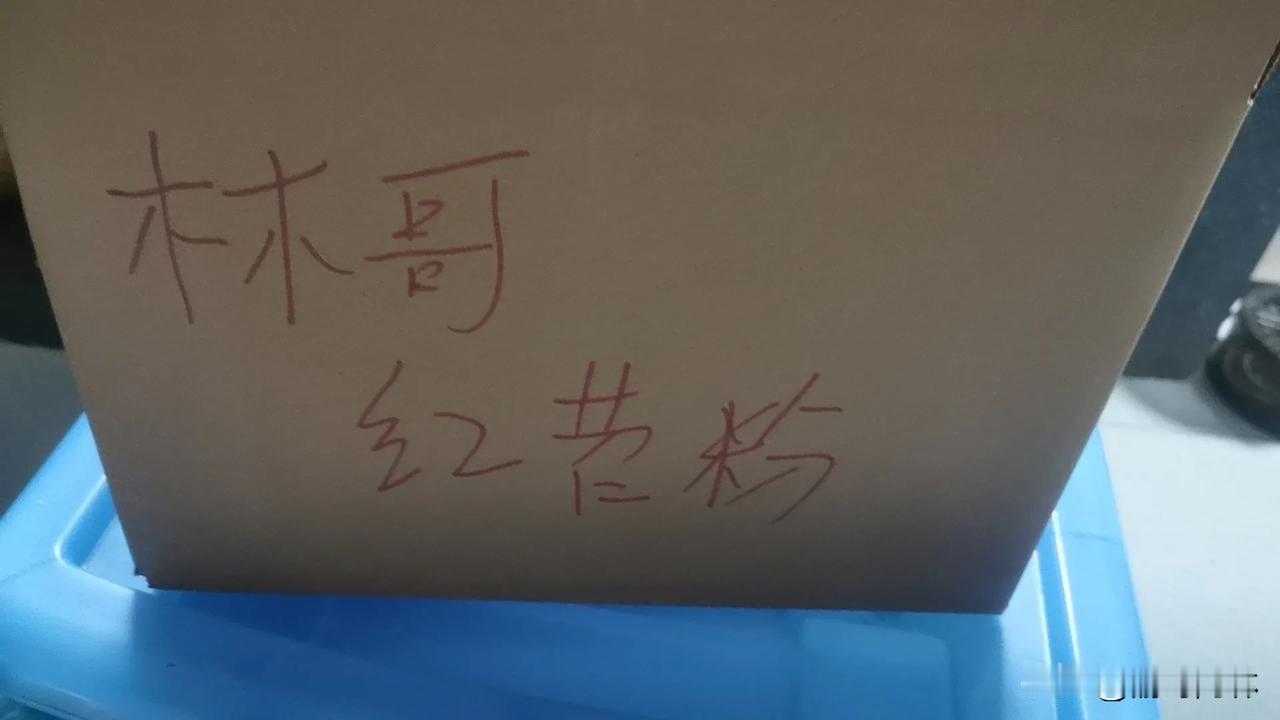 林哥
红苕粉